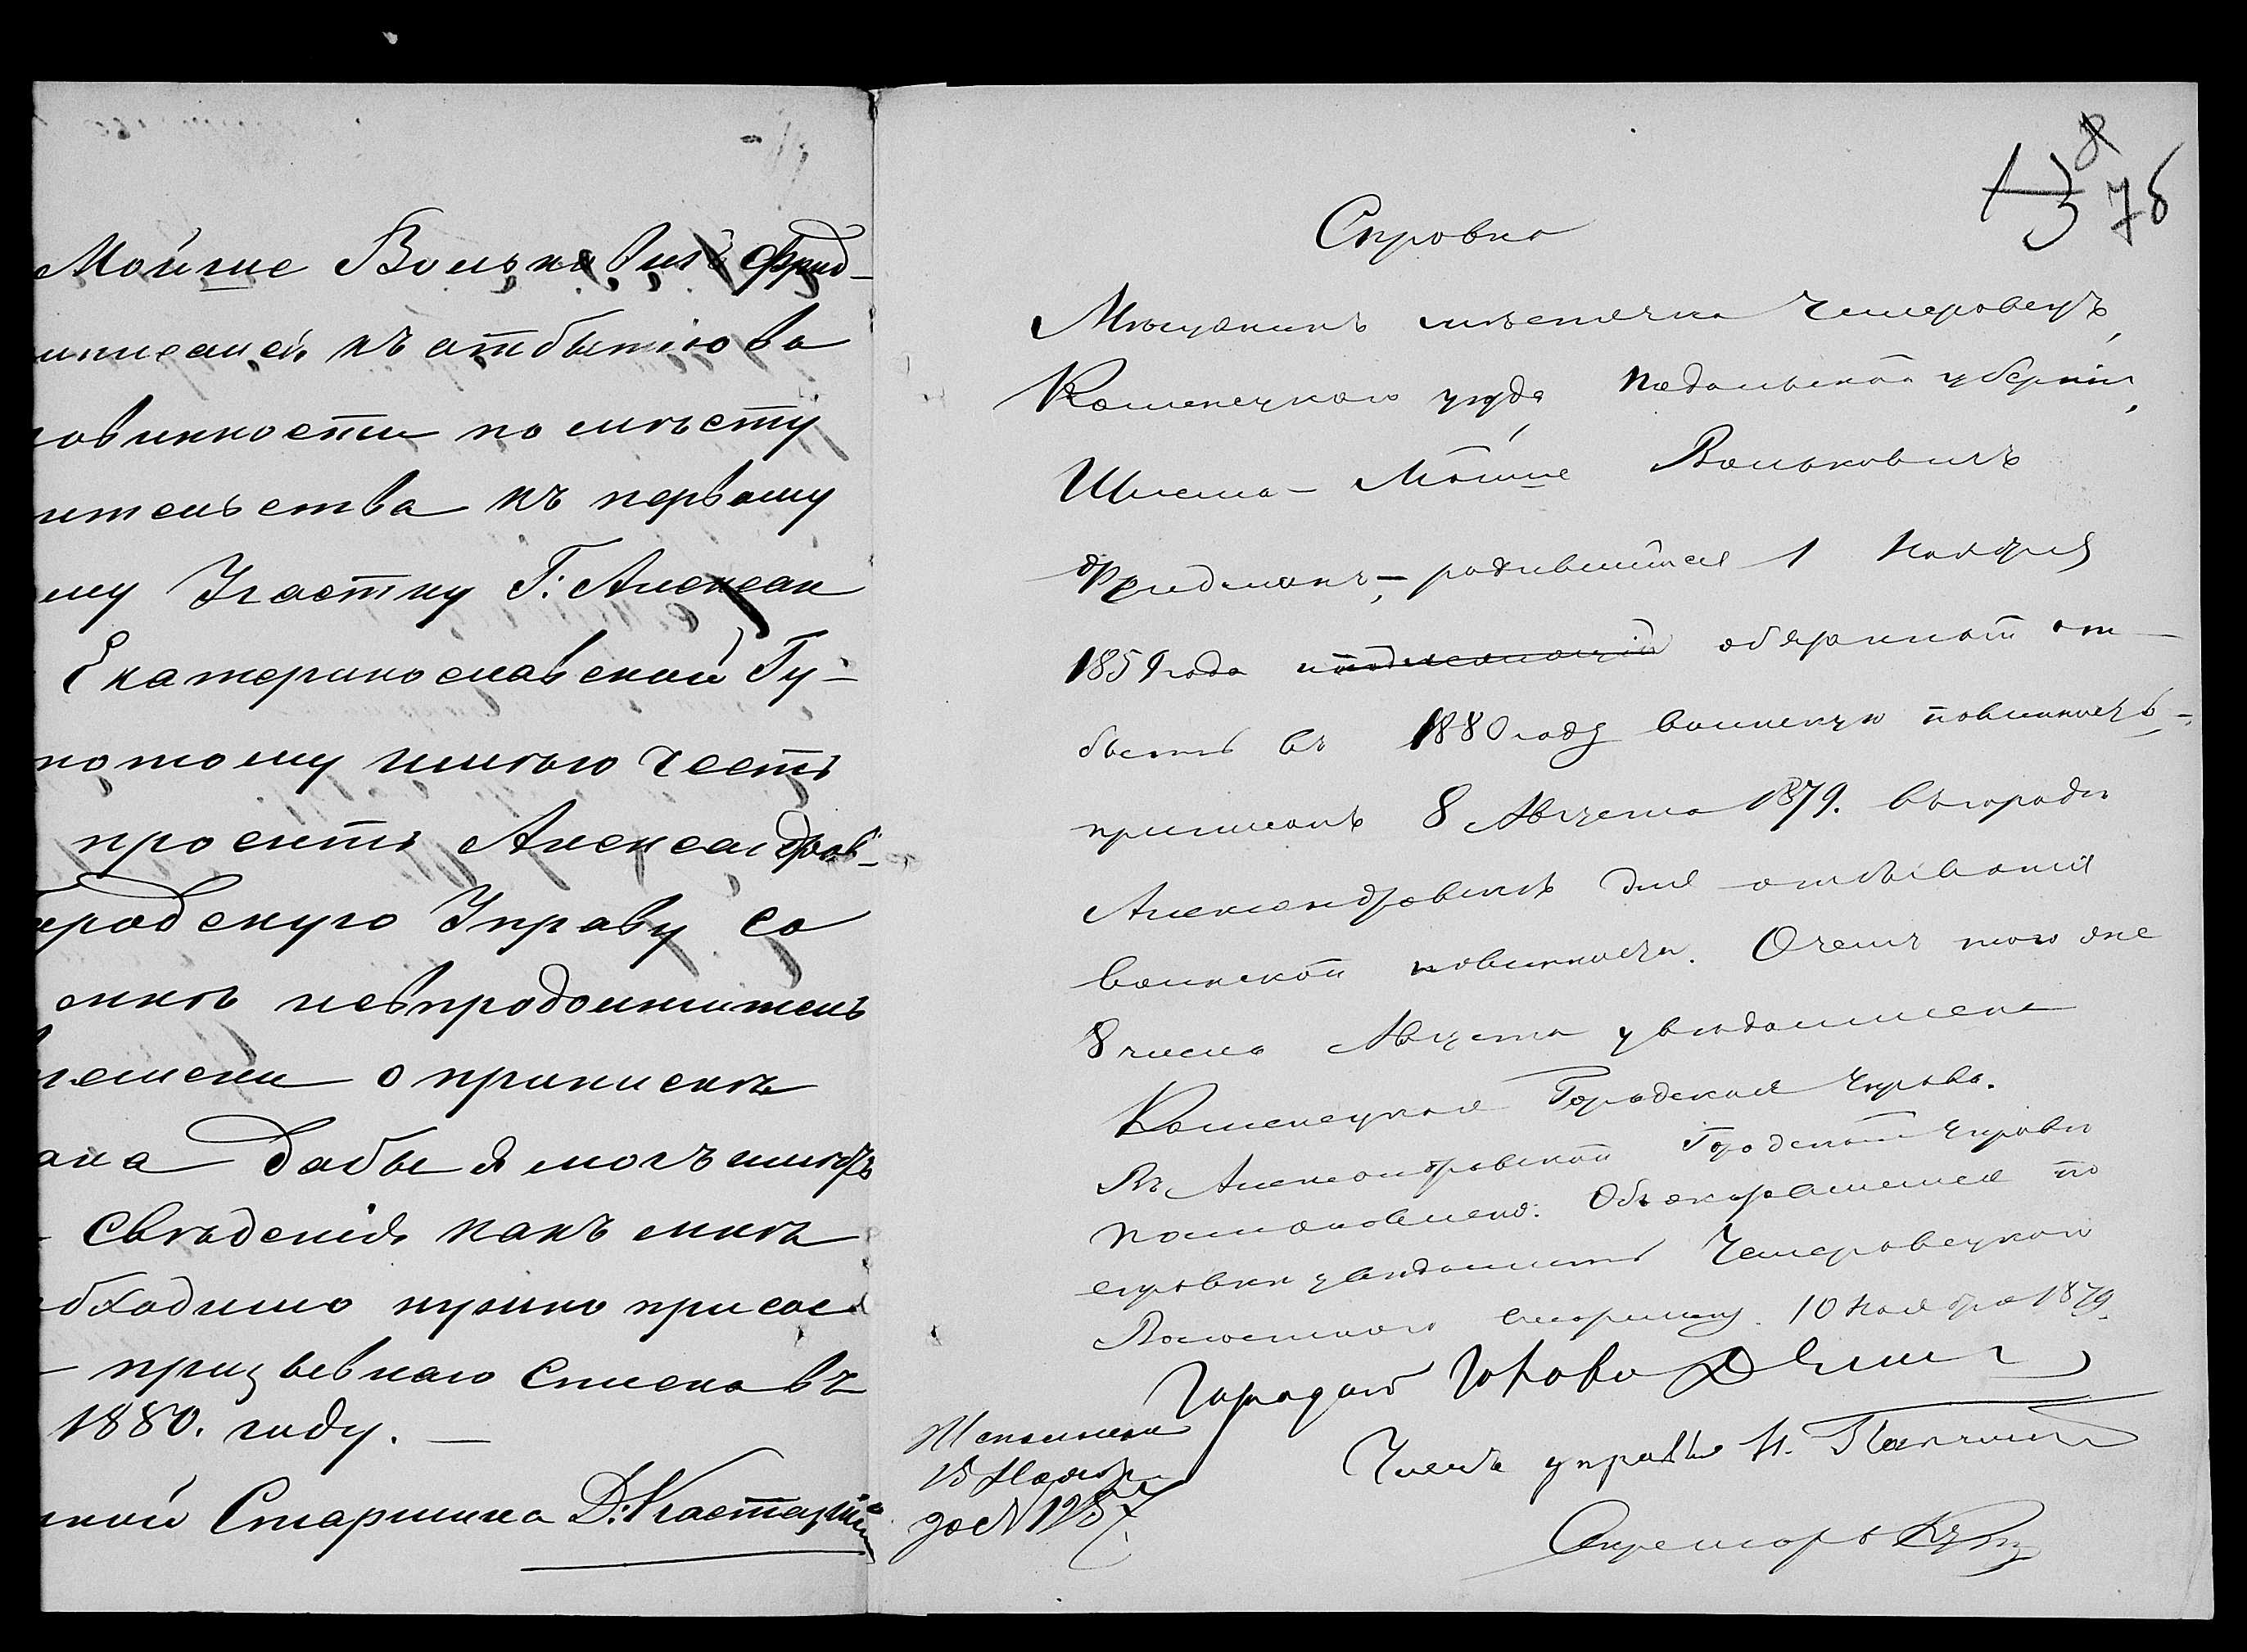 Мойше Вольковичъ Фрид-
къ отбытію во
повинности по мѣсту
жительства къ первому
му Участку Г: Алексан
Екатеринославской Гу-
потому имѣю честь
просить Александров-
Городскую Управу со
мнѣ въ непродолжитель
времени о припискѣ
мана дабы я могъ имѣть
свѣденія какъ мнѣ
обходимо нужно при сос
- призывнаго списка въ
1880. году. —
ной Старшина Д.
8
13 76
Справка
Мѣщанинъ мѣстечка Чемеровецъ,
Каменецкаго уѣзда, Подольской губерніи,
Шлема - Мойше Вольковичъ
Фридманъ, - родившійся 1 Ноября
1859 года подлежащій обязанный от-
быть въ 1880 году воинскую повинность, -
приписанъ 8 Августа 1879. въ городѣ
Александровскѣ для отбыванія
воинской повинности. О чемъ того же
8 числа Августа увѣдомлена
Каменецкая Городская Управа.
Въ Александровской Городской Управѣ
постановлено: Объ оказавшемся по
справкѣ увѣдомить Чемеровецкого
Волостного Старшину. 10 Ноября 1879.
Городской Голова
Членъ управы Н.
Секретарь
Исполнено
15 Ноябр
за № 1287